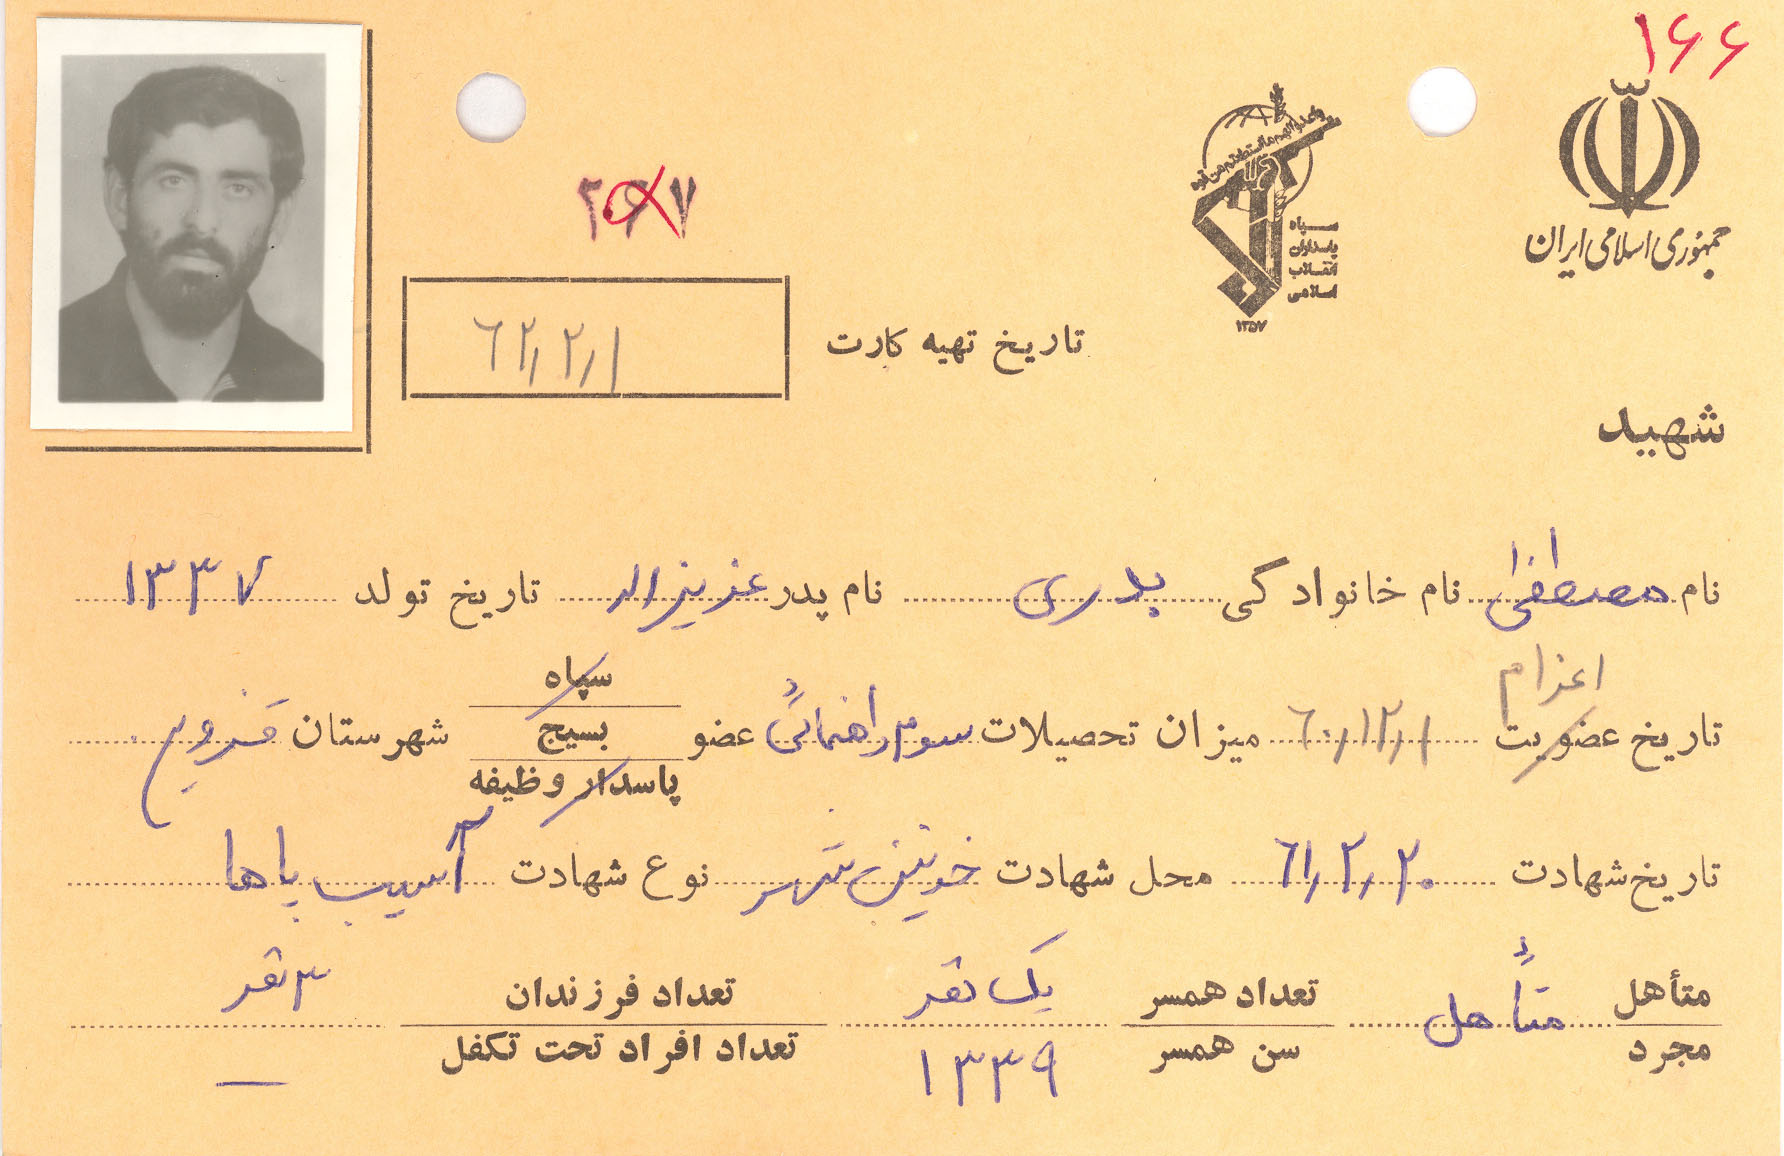 ۱۶۶
جمهوری اسلامی ایران
سپاه
پاسداران
انقلاب
اسلامی
۱۳۵۷
تاریخ تهیه کارت ۶۲/۲/۱
شهید
نام مصطفی نام خانوادگی بدری نام پدر عزیزاله تاریخ تولد ۱۳۳۷
اعزام
تاریخ عضویت ۶۰/۱۲/۱ میزان تحصیلات سوم راهنمائی عضو سپاه بسیج پاسدار وظیفه شهرستان قزوین
تاریخ شهادت ۶۱/۲/۲۰ محل شهادت خونین شهر نوع شهادت آسیب پاها
متأهل مجرد متأهل تعداد همسر یک نفر تعداد فرزندان ۳ نفر
سن همسر ۱۳۳۹ تعداد افراد تحت تکفل —